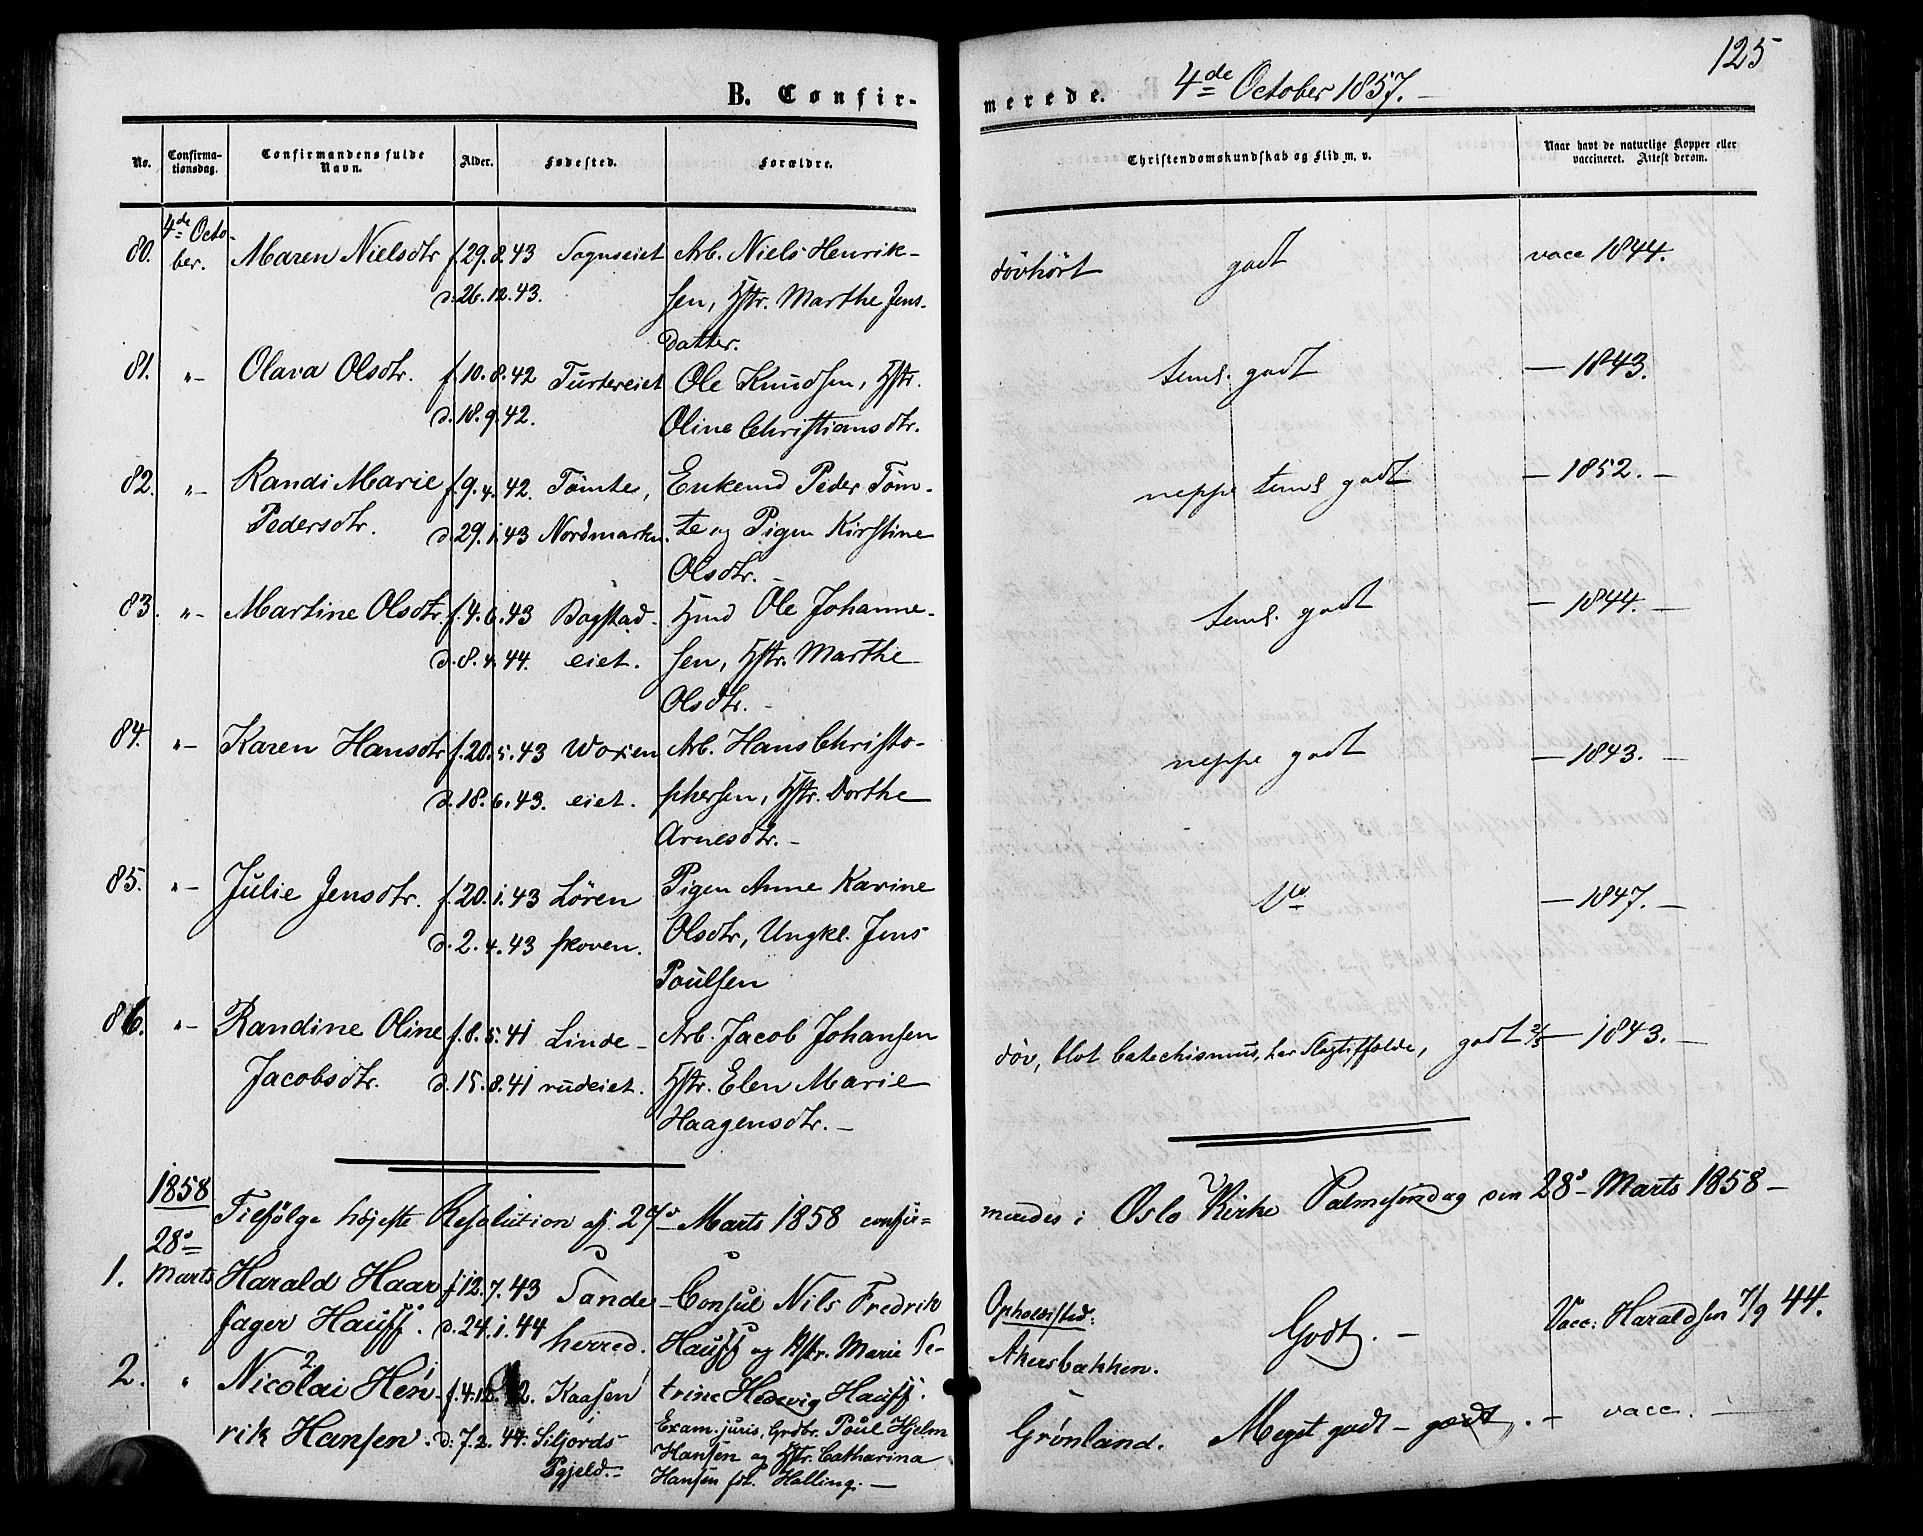 125
B. Confirmerede. 4de October 1857.
No. Confirmationsdag. Confirmandens fulde Navn. Alder. Fødested. Forældre. Christendomskundskab og Flid m. v. Naar havt de naturlige Kopper eller vaccineret. Attest derom.
80. 4de October. Maren Nielsdtr f. 29.8.43 Sognseiet Arb. Niels Henrik- døvhørt godt vacc 1844.
d. 26.12.43. sen, Hstr. Marthe Jens-
datter.
81. "- Olava Olsdtr. f. 10.8.42 Turtereiet Ole Knudsen, Hstr. teml. godt — 1843.
d. 18.9.42. Oline Christiansdtr.
82. "- Randi Marie f. 9.4.42. Tømte, Enkemd Peder Tøm- neppe teml godt — 1852. —
Pedersdtr. d. 29.1.43 Nordmarken. te og Pigen Kirstine
Olsdtr. —
83. "- Martine Olsdtr f. 4.6.43 Bogstad- Hmd Ole Johanne- teml. godt — 1844. —
d. 8.4.44. eiet. sen, Hstr. Marthe
Olsdtr. —
84. "- Karen Hansdtr f. 20.5.43 Woxen Arb. Hans Christo- neppe godt — 1843. —
d. 18.6.43. eiet. phersen, Hstr. Dorthe
Arnesdtr. —
85. "- Julie Jensdtr. f. 20.1.43 Løren Pigen Anne Karine — 1847. —
d. 2.4.43 skoven. Olsdtr, Ungkl. Jens
Poulsen
86. "- Randine Oline f. 8.5.41 Linde- Arb. Jacob Johansen døv, blot Catechismus, har godt — 1843. —
Jacobsdtr. d. 15.8.41 rudeiet. Hstr. Elen Marie
Haagensdtr. —
1858
Tilfølge højeste Resolution af 27de Marts 1858 confir= meredes i Oslo Kirke Palmesøndag den 28de Marts 1858 —
28de
1. Marts Harald Haar f. 12.7.43 Sande- Consul Nils Fredrik Opholdssted: Godt. — Vacc: Haraldsen 7/9 44.
fager Hauff. d. 24.1.44 herred. Hauff og Hstr. Marie Pe- Akersbakken.
2. " Nicolai Hen- f. 4. Kaasen trine Hedevig Hauff. Grønland. Meget godt — godt. — vacc. —
rik Hansen. d. 7.2.44. Siljords Exam. juris, Grdbr. Poul Hjelm
Pgjeld. — Hansen og Hstr. Catharina
Hansen fdt. Halling. —